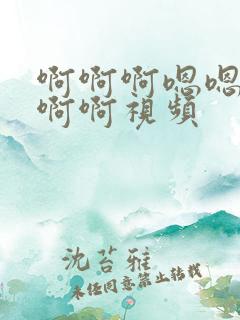 啊啊啊嗯嗯
啊啊視頻
沈苔雅
未经同意禁止转载